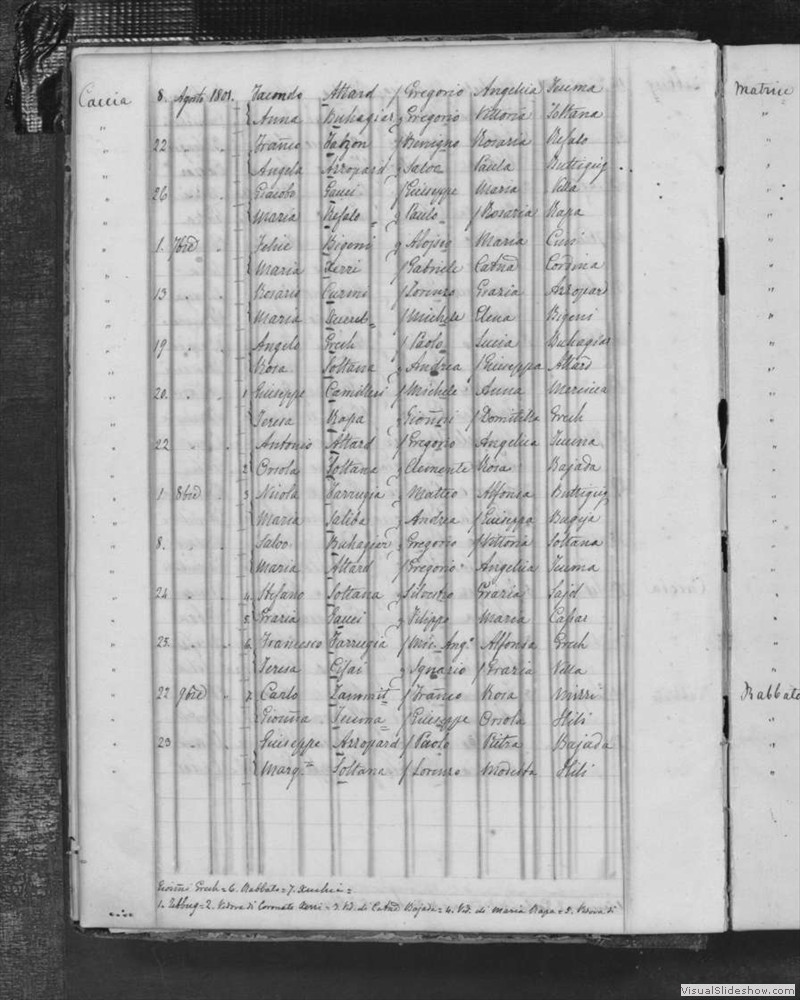 Caccia 8. Agosto 1801. Facondo Attard f Gregorio Angelica Teuma Matrice
" Anna Buhagiar f Gregorio Vittoria Soltana
" 22 " " Franco Fabzon f Benigno Rosaria Refalo
" Angela Arropard f Salvo Paula Buttigieg
" 26 " " Giacobo Gauci f Giuseppe Maria Villa
" Maria Refalo f Paulo f Rosaria Rapa
" 1. 7bre " Felice Bigeni f Aloisio Maria Cini
" Maria Xerri f Gabriele Catna Cordina
" 13 " " Rosario Curmi f Lorenzo Grazia Arropar
" Maria f Michele Elena Bigeni
" 19 " " Angelo Grech f Paolo Lucia Buhagiar
" Rosa Soltana f Andrea f Giuseppa Attard
" 20. " " 1 Giuseppe Camilleri f Michele Anna
" Teresa Rapa f Gionni f Domitilla Grech
" 22 " " Antonio Attard f Gregorio Angelica Teuma
" 2 Orsola Soltana f Clemente Rosa Bajada
" 1 8bre " 3 Nicola Farrugia f Matteo Alfonsa Buttigieg
" Maria Saliba f Andrea f Giuseppa Bugeja
" 8. " " Salvo Buhagiar f Gregorio f Vittoria Soltana
" Maria Attard f Gregorio Angelica Teuma
" 24 " " 4. Stefano Soltana f Silvestro Grazia Said
" 5. Grazia Gauci f Filippo Maria
" 25. " " 6. Francesco Farrugia f Mic. Ang.o Alfonsa Grech
" Teresa f Ignazio f Grazia Villa
" 22 9bre " 7. Carlo Zammit f Franco Rosa Rabbato
" Gionna Teuma f Giuseppe Orsola Hili
" 23 " " Giuseppe Arropard f Paolo Pietra Bajada
" Marg.ta Soltana f Lorenzo Modesta Hili
Gionni Grech = 6. Rabbato = 7. =
1. Zebbug = 2. Vedova di Coronato Xerri = 3. Vd. di Catna Bajada = 4. Vd. di Maria Rapa = 5. Vedova di
VisualSlideshow.com